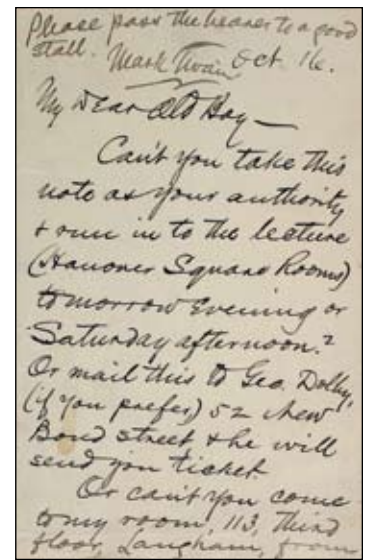 Please pass the bearer to a good
stall. Mark Twain Oct. 16.
My Dear Old Boy—
Can't you take this
note as your authority
& run in to the lecture
(Hanover Square Rooms)
tomorrow Evening or
Saturday afternoon?
Or mail this to Geo. Dolby,
(if you prefer) 52 New
Bond street & he will
send you ticket.
Or can't you come
to my room, 113, Third
floor, Langham, from